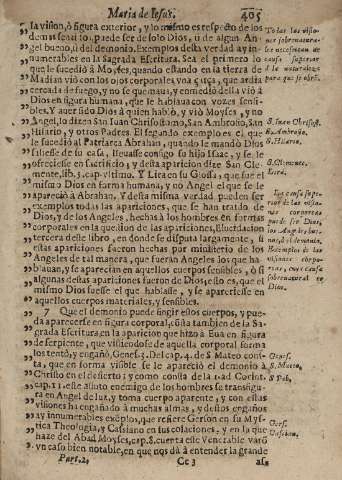 Maria de Iesus. 405
la vision, ò figura exterior, y lo mismo es respecto de los
demas sentido. puede ser de solo Dios, ù de algun An-
gel bueno, ù del demonio. Exemplos desta verdad ay in-
numerables en la Sagrada Escritura. Sea el primero lo
que le sucediò à Moyses, quando estando en la tierra de
Madian viò con los ojos corporales, vna çarça, que ardia
cercada de fuego, y no se quemaua, y conmediò della viò à
Dios en figura humana, que le hablaua con vozes sensi-
bles. Y auer sido Dios à quien hablò, y viò Moyses, y no
Angel, lo dizen San Iuan Chrisostomo, San Ambrosio, San
Hilario, y otros Padres. El segundo exemplo es el que
le sucediò al Patriarca Abrahan, quando le mandò Dios
saliesse de su casa, lleuasse consigo su hijo Isaac, y se le
ofreciesse en sacrificio, y desta aparicion dize San Cle-
mente, lib. 5. cap. vltimo. Y Lira en su Glosa, que fue el
mismo Dios en forma humana, y no Angel el que se le
apareciò à Abrahan, Y desta misma verdad pueden ser
exemplos todas las apariciones, que se han traìdo de
Dios, y de los Angeles, hechas à los hombres en formas
corporales en la question de las apariciones, Elucidacion
tercera deste libro, en donde se disputa largamente, si
estas apariciones fueron hechas por ministerio de los
Angeles de tal manera, que fueran Angeles los que ha-
blauan, y se aparecian en aquellos cuerpos sensibles, ò si
algunas destas apariciones fueron de Dios, esto es, que el
mismo Dios fuesse el que hablasse, y se apareciesse en
aquellos cuerpos materiales, y sensibles.
7 Que el demonio puede fingir estos cuerpos, y pue-
da aparecerse en figura corporal, consta tambien de la Sa-
grada Escritura en la aparicion que hizo à Eua en figura
de serpiente, que vistiendose de aquella corporal forma
los tentò, y engañò, Genes. 3. Del cap. 4. de S. Mateo cons-
ta, que en forma visible se le apareciò el demonio à
Christo en el desierto; y como consta de la 2. ad Cor.
cap. 11. este astuto enemigo de los hombres se transfigu-
ra en Angel de luz, y toma cuerpo aparente, y con estas
visiones ha engañado à muchas almas, y destos engaños
ay innumerables exemplos, que refiere Gerson en su Mys-
tica Theologia, y Cassiano en sus colaciones, y en la que
haze del Abad Moyses, cap. 8. cuenta este Venerable varō
vn caso bien notable, en que nos dà à entender la grande
Part. 2. Cc 3
Todas las visiones
sobrenatura-
les necessitan de
causa superior
à la naturaleza
S. Iuan Chrisost.
S. Ambrosio.
S. Hilario.
S. Clemente.
Lira.
La causa supe-
rior de las visio-
nes corporeas
puede ser Dios,
los Angeles bue-
nos, ò el demonio.
Exemplos de las
visiones corpo-
reas, cuya causa
sobrenatural es
Dios.
Genes.
S. Mateo.
S. Pab.
Gers.
Cassian.